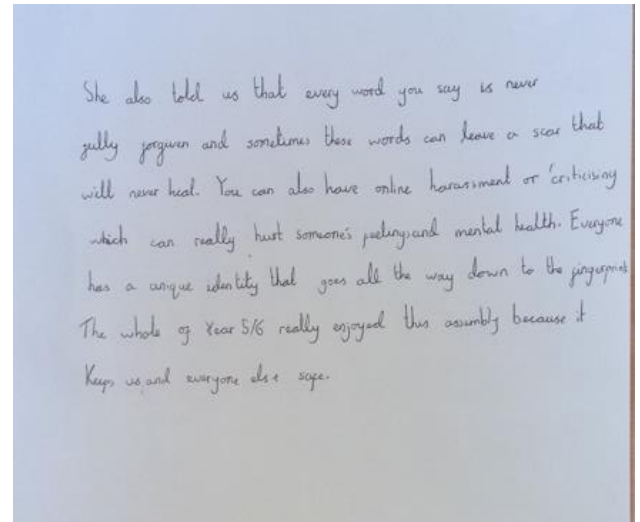 She also told us that every word you say is never
fully forgiven and sometimes these words can leave a scar that
will never heal. You can also have online harassment or criticising
which can really hurt someone's feelings and mental health. Everyone
has a unique identity that goes all the way down to the fingerprints
The whole of Year 5/6 really enjoyed this assembly because it
Keeps us and everyone else safe.